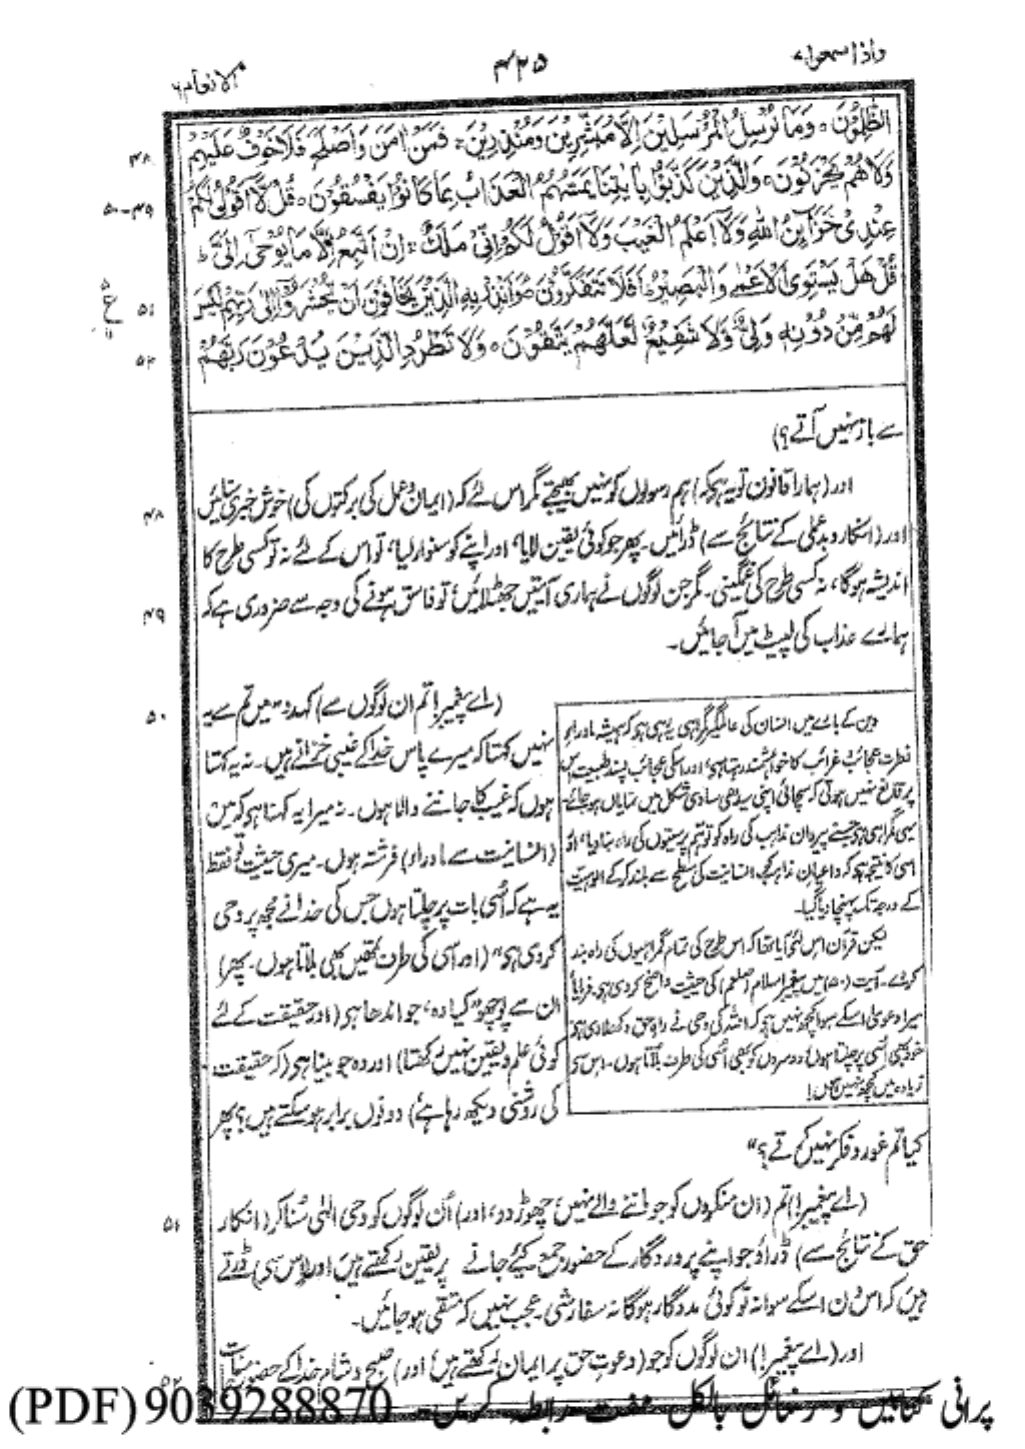 واذا سمعوا ۷
۴۲۵
الانعام ۶
الظّٰلِمُوْنَ ۞ وَمَا نُرْسِلُ الْمُرْسَلِيْنَ اِلَّا مُبَشِّرِيْنَ وَمُنْذِرِيْنَ ۚ فَمَنْ اٰمَنَ وَاَصْلَحَ فَلَا خَوْفٌ عَلَيْهِمْ
۴۸
وَلَا هُمْ يَحْزَنُوْنَ ۞ وَالَّذِيْنَ كَذَّبُوْا بِاٰيٰتِنَا يَمَسُّهُمُ الْعَذَابُ بِمَا كَانُوْا يَفْسُقُوْنَ ۞ قُلْ لَّآ اَقُوْلُ لَكُمْ
۴۹-۵۰
عِنْدِيْ خَزَآىِٕنُ اللّٰهِ وَلَآ اَعْلَمُ الْغَيْبَ وَلَآ اَقُوْلُ لَكُمْ اِنِّيْ مَلَكٌ ۚ اِنْ اَتَّبِعُ اِلَّا مَا يُوْحٰٓى اِلَيَّ ؕ
قُلْ هَلْ يَسْتَوِي الْاَعْمٰى وَالْبَصِيْرُ ؕ اَفَلَا تَتَفَكَّرُوْنَ ۞ وَاَنْذِرْ بِهِ الَّذِيْنَ يَخَافُوْنَ اَنْ يُّحْشَرُوْٓا اِلٰى رَبِّهِمْ لَيْسَ
۵۱
ع
لَهُمْ مِّنْ دُوْنِهٖ وَلِيٌّ وَّلَا شَفِيْعٌ لَّعَلَّهُمْ يَتَّقُوْنَ ۞ وَلَا تَطْرُدِ الَّذِيْنَ يَدْعُوْنَ رَبَّهُمْ
۵۲
سے باز نہیں آتے؟)
اور (ہمارا قانون تو یہ ہے کہ) ہم رسولوں کو نہیں بھیجتے مگر اس لئے کہ (ایمان وعمل کی برکتوں کی) خوش خبری سنائیں
۴۸
اور (انکار و بدعملی کے نتائج سے) ڈرائیں۔ پھر جو کوئی یقین لایا، اور اپنے کو سنوار لیا، تو اس کے لئے نہ تو کسی طرح کا
اندیشہ ہوگا، نہ کسی طرح کی غمگینی۔ مگر جن لوگوں نے ہماری آیتیں جھٹلائیں تو فاسق ہونے کی وجہ سے ضروری ہے کہ
۴۹
ہمارے عذاب کی لپیٹ میں آجائیں۔
(اے پیغمبر! تم ان لوگوں سے) کہدو "میں تم سے یہ
۵۰
نہیں کہتا کہ میرے پاس خدا کے غیبی خزانے ہیں۔ نہ یہ کہتا
ہوں کہ غیب کا جاننے والا ہوں۔ نہ میرا یہ کہنا ہی کہ میں
(انسانیت سے ماوراء) فرشتہ ہوں۔ میری حیثیت تو فقط
یہ ہے کہ اُسی بات پر چلتا ہوں جس کی خدا نے مجھ پر وحی
کردی ہی" (اور اسی کی طرف تمھیں بھی بلاتا ہوں۔ پھر)
ان سے پوچھو" کیا وہ، جو اندھا ہی (اور حقیقت کے لئے
کوئی علم و یقین نہیں رکھتا) اور وہ جو بینا ہی (کہ حقیقت
کی روشنی دیکھ رہا ہے) دونوں برابر ہو سکتے ہیں؟ پھر
دین کے بارے میں انسان کی عالمگیر گمراہی یہ رہی ہو کہ ہمیشہ ماوراء
فطرت عجائب وغرائب کا خواہشمند رہتا ہی، اور اسکی عجائب پسند طبیعت اس
پر قانع نہیں ہوتی کہ سچائی اپنی سیدھی سادی شکل میں نمایاں ہو جائے۔
یہی گمراہی ہو جسنے پیروان مذاہب کی راہ کو توہم پرستیوں کی راہ بنا دیا، اور
اسی کا نتیجہ ہو کہ داعیان مذاہب کو انسانیت کی سطح سے بلند کرکے الوہیت
کے درجہ تک پہنچا دیا گیا۔
لیکن قرآن اس لئے آیا تھا کہ اس طرح کی تمام گمراہیوں کی راہ بند
کردے۔ آیت (۵۰) میں پیغمبر اسلام (صلعم) کی حیثیت واضح کردی ہی۔ فرمایا
میرا دعویٰ اسکے سوا کچھ نہیں ہو کہ اللہ کی وحی نے راہ حق دکھلادی ہو
خود بھی اُسی پر چلتا ہوں، دوسروں کو بھی اُسی کی طرف بلاتا ہوں۔ اس سی
زیادہ میں کچھ نہیں ہوں!
کیا تم غور و فکر نہیں کرتے؟"
(اے پیغمبر!) تم (ان منکروں کو جو ماننے والے نہیں، چھوڑ دو، اور) اُن لوگوں کو وحی الٰہی سُنا کر (انکار
۵۱
حق کے نتائج سے) ڈراؤ جو اپنے پروردگار کے حضور جمع کیئے جانے پر یقین رکھتے ہیں اور (اس سی) ڈرتے
ہیں کہ اس دن اسکے سوا نہ تو کوئی مددگار ہوگا نہ سفارشی۔ عجب نہیں کہ متقی ہوجائیں۔
اور (اے پیغمبر!) ان لوگوں کو جو (دعوت حق پر ایمان رکھتے ہیں، اور) صبح و شام خدا کے حضور مناجات
۵۲
پرانی کتابیں و رسائل بالکل مفت رابطہ کریں۔ 9039288870 (PDF)